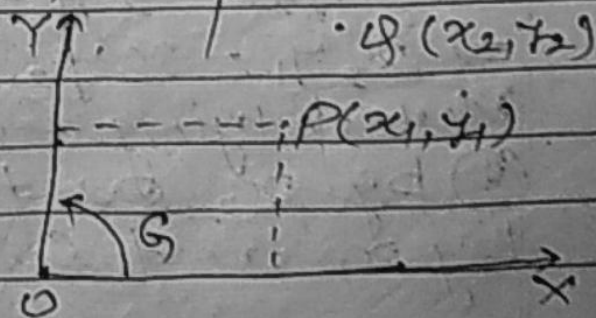 Y
Q (x2, y2)
P(x1, y1)
G
O
X